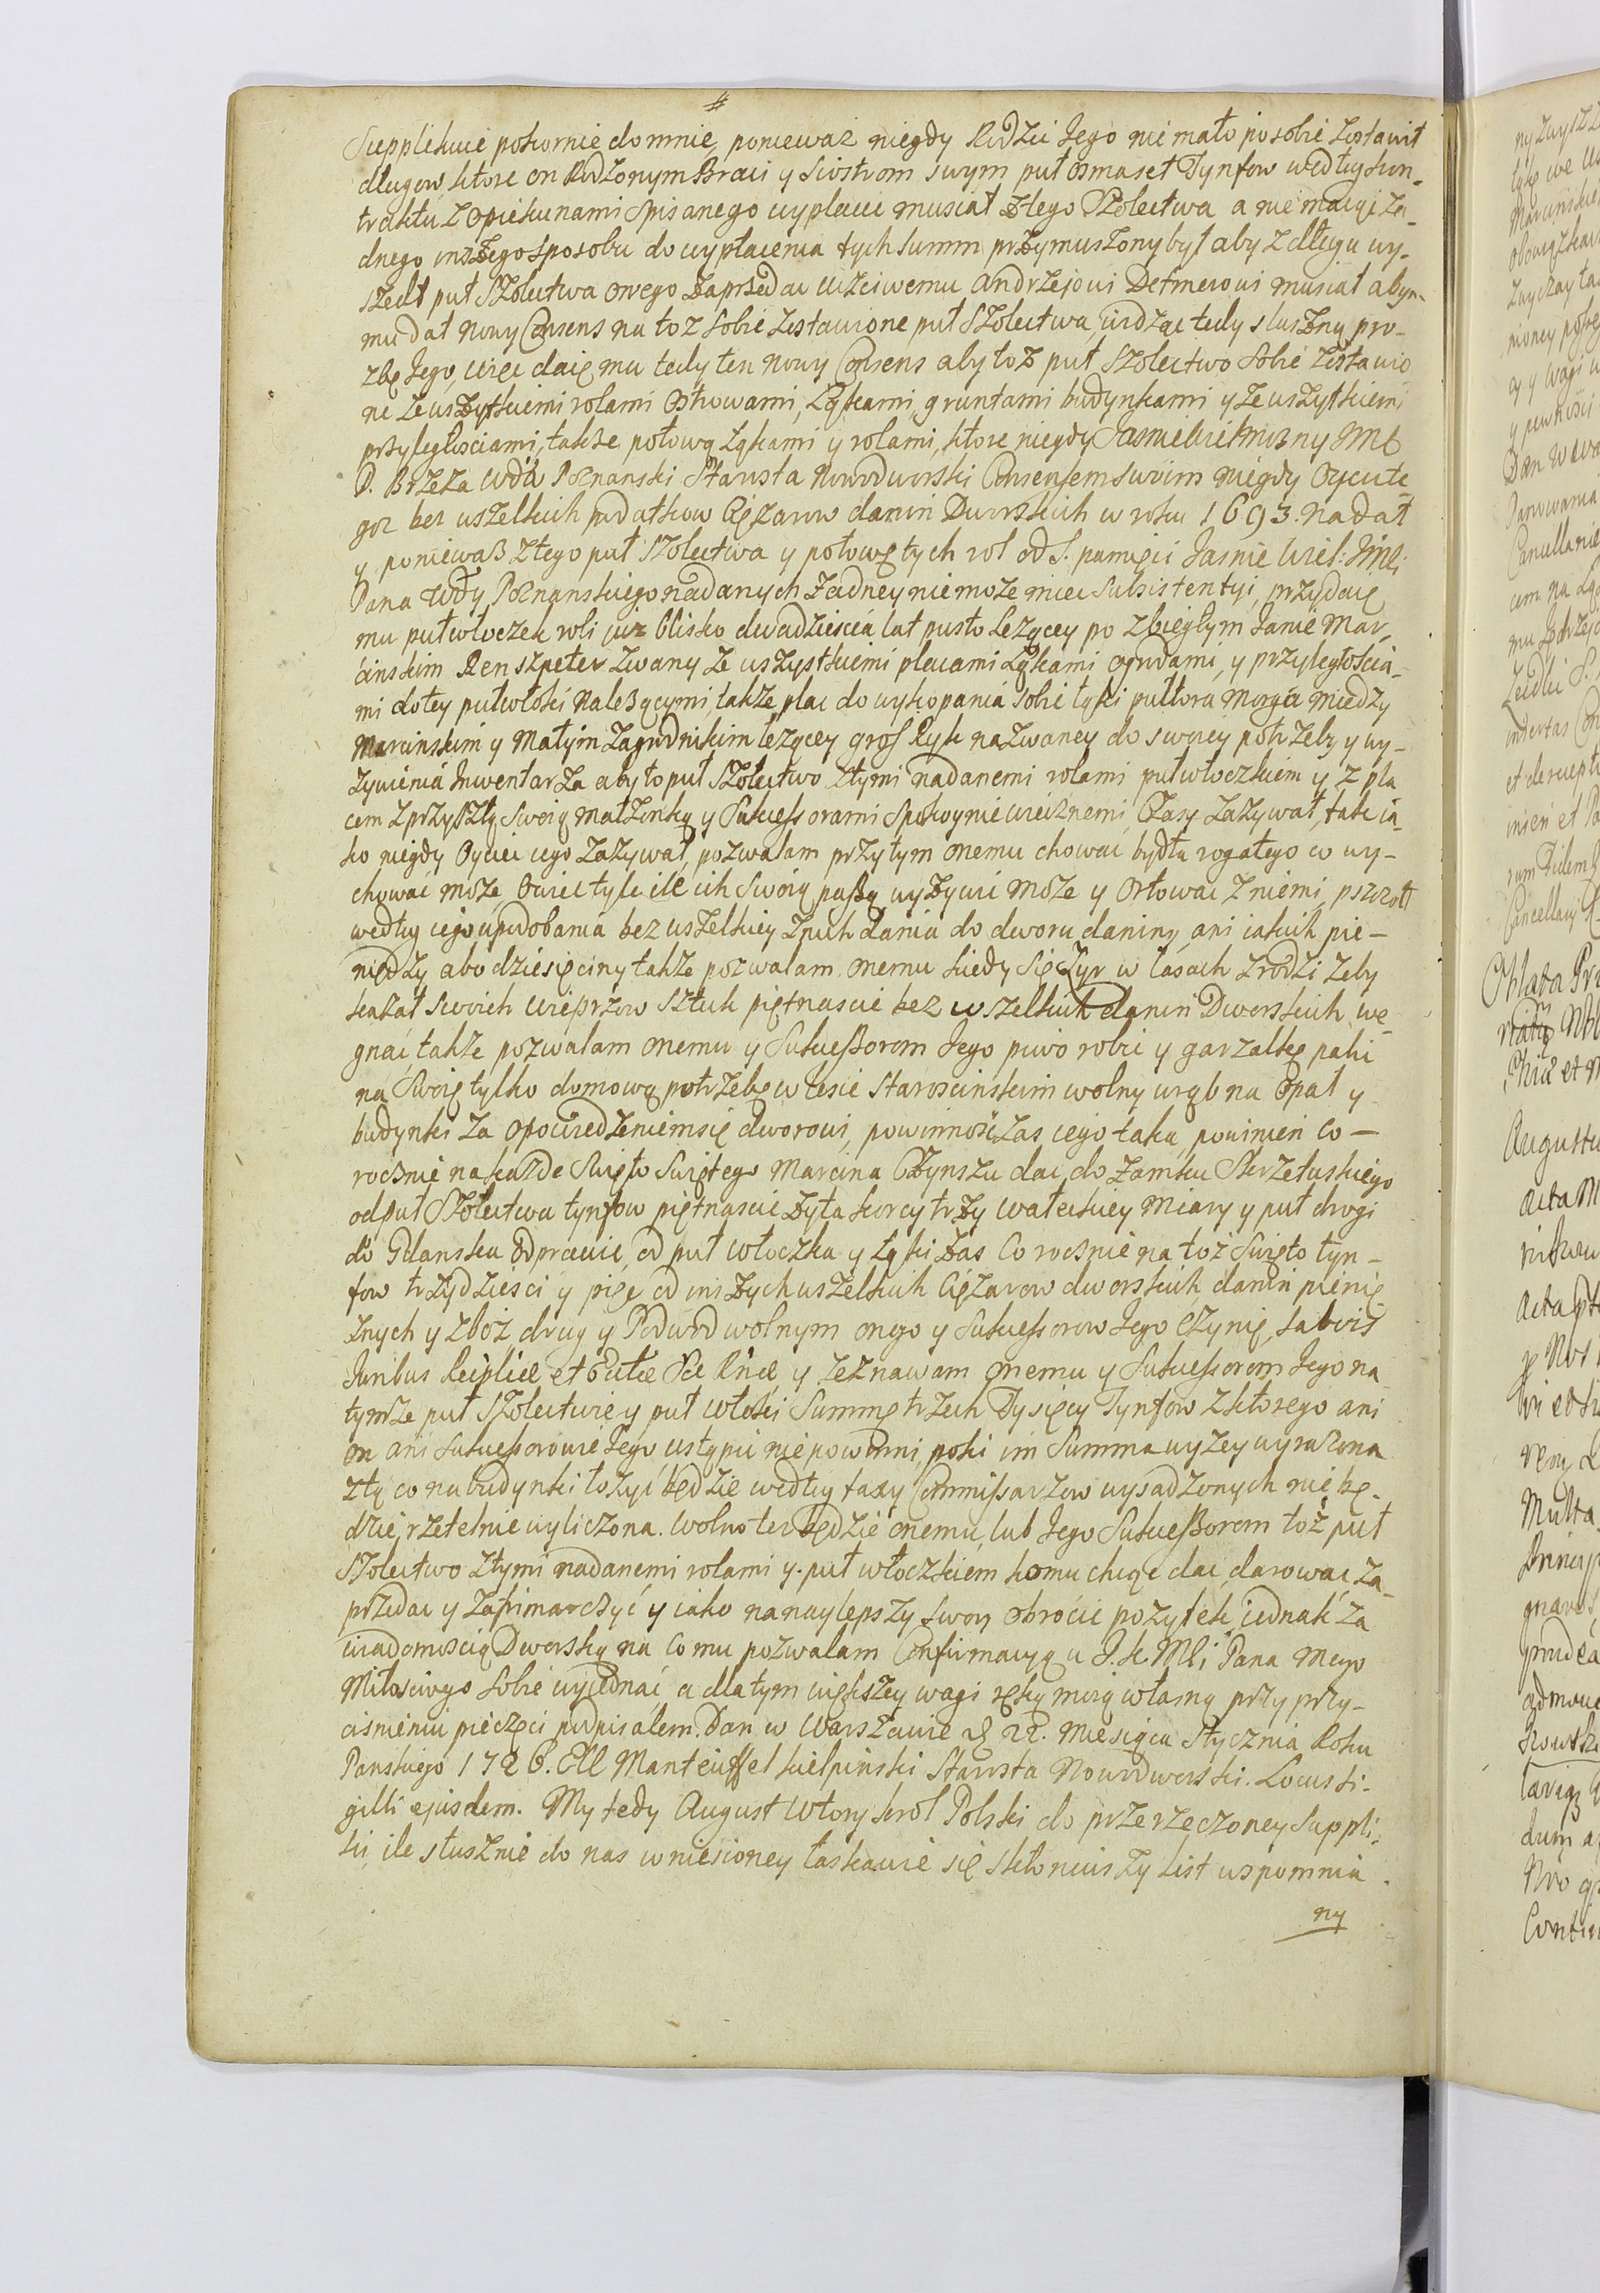 Supplikuie pokornie do mnie, ponieważ niegdy Rodzic Jego nie mało po sobie zostawił
długow, ktore on Rodzonym Braci y Siostrom swym puł osmaset Tynfow według kon-
traktu z opiekunami spisanego wypłacic musiał z tego Szołectwa a nie maiąc ża-
dnego inszego sposobu do wypłacenia tych summ przymuszony był aby z długu wy-
szedł puł Szołectwa swego zaprzedac uczciwemu Andrzejowi Detmerowi musiał abym
mu dał nowy Consens na to z sobie zostawione puł Szołectwa, widząc tedy sluszną pro-
zbę Jego, więc daię mu tedy ten nowy Consens aby toż puł Szołectwo sobie zostawio
ne ze wszytkiemi rolami Ostrowami, Łąkami, gruntami budynkami y ze wszytkiemi
przyległosciami, także połową Łąkami y rolami, ktore niegdy Jasnie Wielmozny JMC
P. Breza Wda Poznanski Starosta Nowodworski Consensem swoim niegdy Oycu te-
goz bez wszelkich podatkow Ciężarow danin Dworskich w roku 1693. nadał
y poniewaß z tego puł Szolectwa y połowę tych rol od S. pamięci Jasnie Wiel: JMci
Pana Wdy Poznanskiego nadanych żadney nie może miec Subsistentyi, przydaię
mu pułwłoczek roli iuż blisko dwadziescia lat pusto Leżącey po zbiegłym Janie Mar-
cinskim Renszpeter zwany ze wszystkiemi placami Łąkami ogrodami, y przyległoscia-
mi do tey pułwłoki należącymi, także plac do wykopania sobie łąki pułtora morga miedzy
Marcinskim y Małym Zagrodnikiem leżącey gros Ryk nazwaney do swoiey potrzeby y wy-
żywienia Inwentarza aby to puł Szołectwo z tymi nadanemi rolami pułwłoczkiem y z pla
cem z przyszłą swoią małżonką y Sukcessorami Spokoynie wiecznemi Czasy zażywał, tak ia-
ko niegdy Oyciec iego zażywał, pozwalam przytym onemu chowac bydła rogatego co wy-
chowac może Owiec tyle ile ich swoią paszą wyżywic może y Orłowac z niemi, pszczoł
według iego upodobania bez wszelkiey z nich dania do dworu daniny, ani iakich pie-
niędzy abo dziesięciny także pozwalam onemu kiedy się Żyr w lasach zrodzi żeby
kazał swoich wieprzow sztuk piętnascie bez wszelkich danin Dworskich we-
gnać także pozwalam onemu y Sukcessorom Jego piwo robic y garzałkę palic
na swoię tylko domową potrzebę w lesie Starosciuskim wolny wrąb na opał y
budynki za opowiedzeniem się dworowi, powinność zas iego taka, powinien co-
rocznie na każde Swięto Swiętego Marcina Czynszu dac do Zamku Skrzetuskiego
od puł Szołectwa tynfow piętnascie żyta korcy trzy Wałeckiey Miary y puł drogi
do Gdanska odprawic, od puł włoczka y Łąki zas Corocznie na toż Swięto tyn-
fow trzydziesci y pięc od inszych wszelkich Ciężarow dworskich danin pienię-
żnych y zboż drug y Podwod wolnym onego y Sukcessorow Jego czynię, salvis
Juribus Reiplicæ et Ecclæ Sæ Rnæ y zeznawam onemu y Sukcessorom Jego na
tymże puł Szołectwie y puł włoki Summę trzech Tysięcy Tynfow z ktorego ani
on ani Sukcessorowie Jego ustąpic nie powinni, poki im Summa wyżey wyrażona
z tą co na budynki łożyć będzie według taxy Commissarzow wysadzonych nie bę-
dzie rzetelnie wyliczona. Wolno tez będzie onemu, lub Jego Sukcessorom toż puł
Szołectwo z tymi nadanemi rolami y puł włoczkiem komu chcąc dac, darowac, za-
przedac y zafrimarczyć y iako na naylepszy swoy obrocic pożytek iednak za
wiadomoscią Dworską na co mu pozwalam Confirmacyą u J. K. Mci Pana mego
Miłosciwego sobie wyiednać a dla tym większey wagi ręką moią własną przy przy-
cisnieniu pieczęci podpisałem. Dan w Warszawie d 22. Miesiąca Stycznia Roku
Panskiego 1726. Ell Manteüffel Kielpinski Starosta Nowodworski. Locus si-
gilli ejusdem. My tedy August Wtory Krol Polski do przerzeczoney Suppli-
ki, ile słusznie do nas wniesioney łaskawie się skłoniwszy list wspomnia
ny